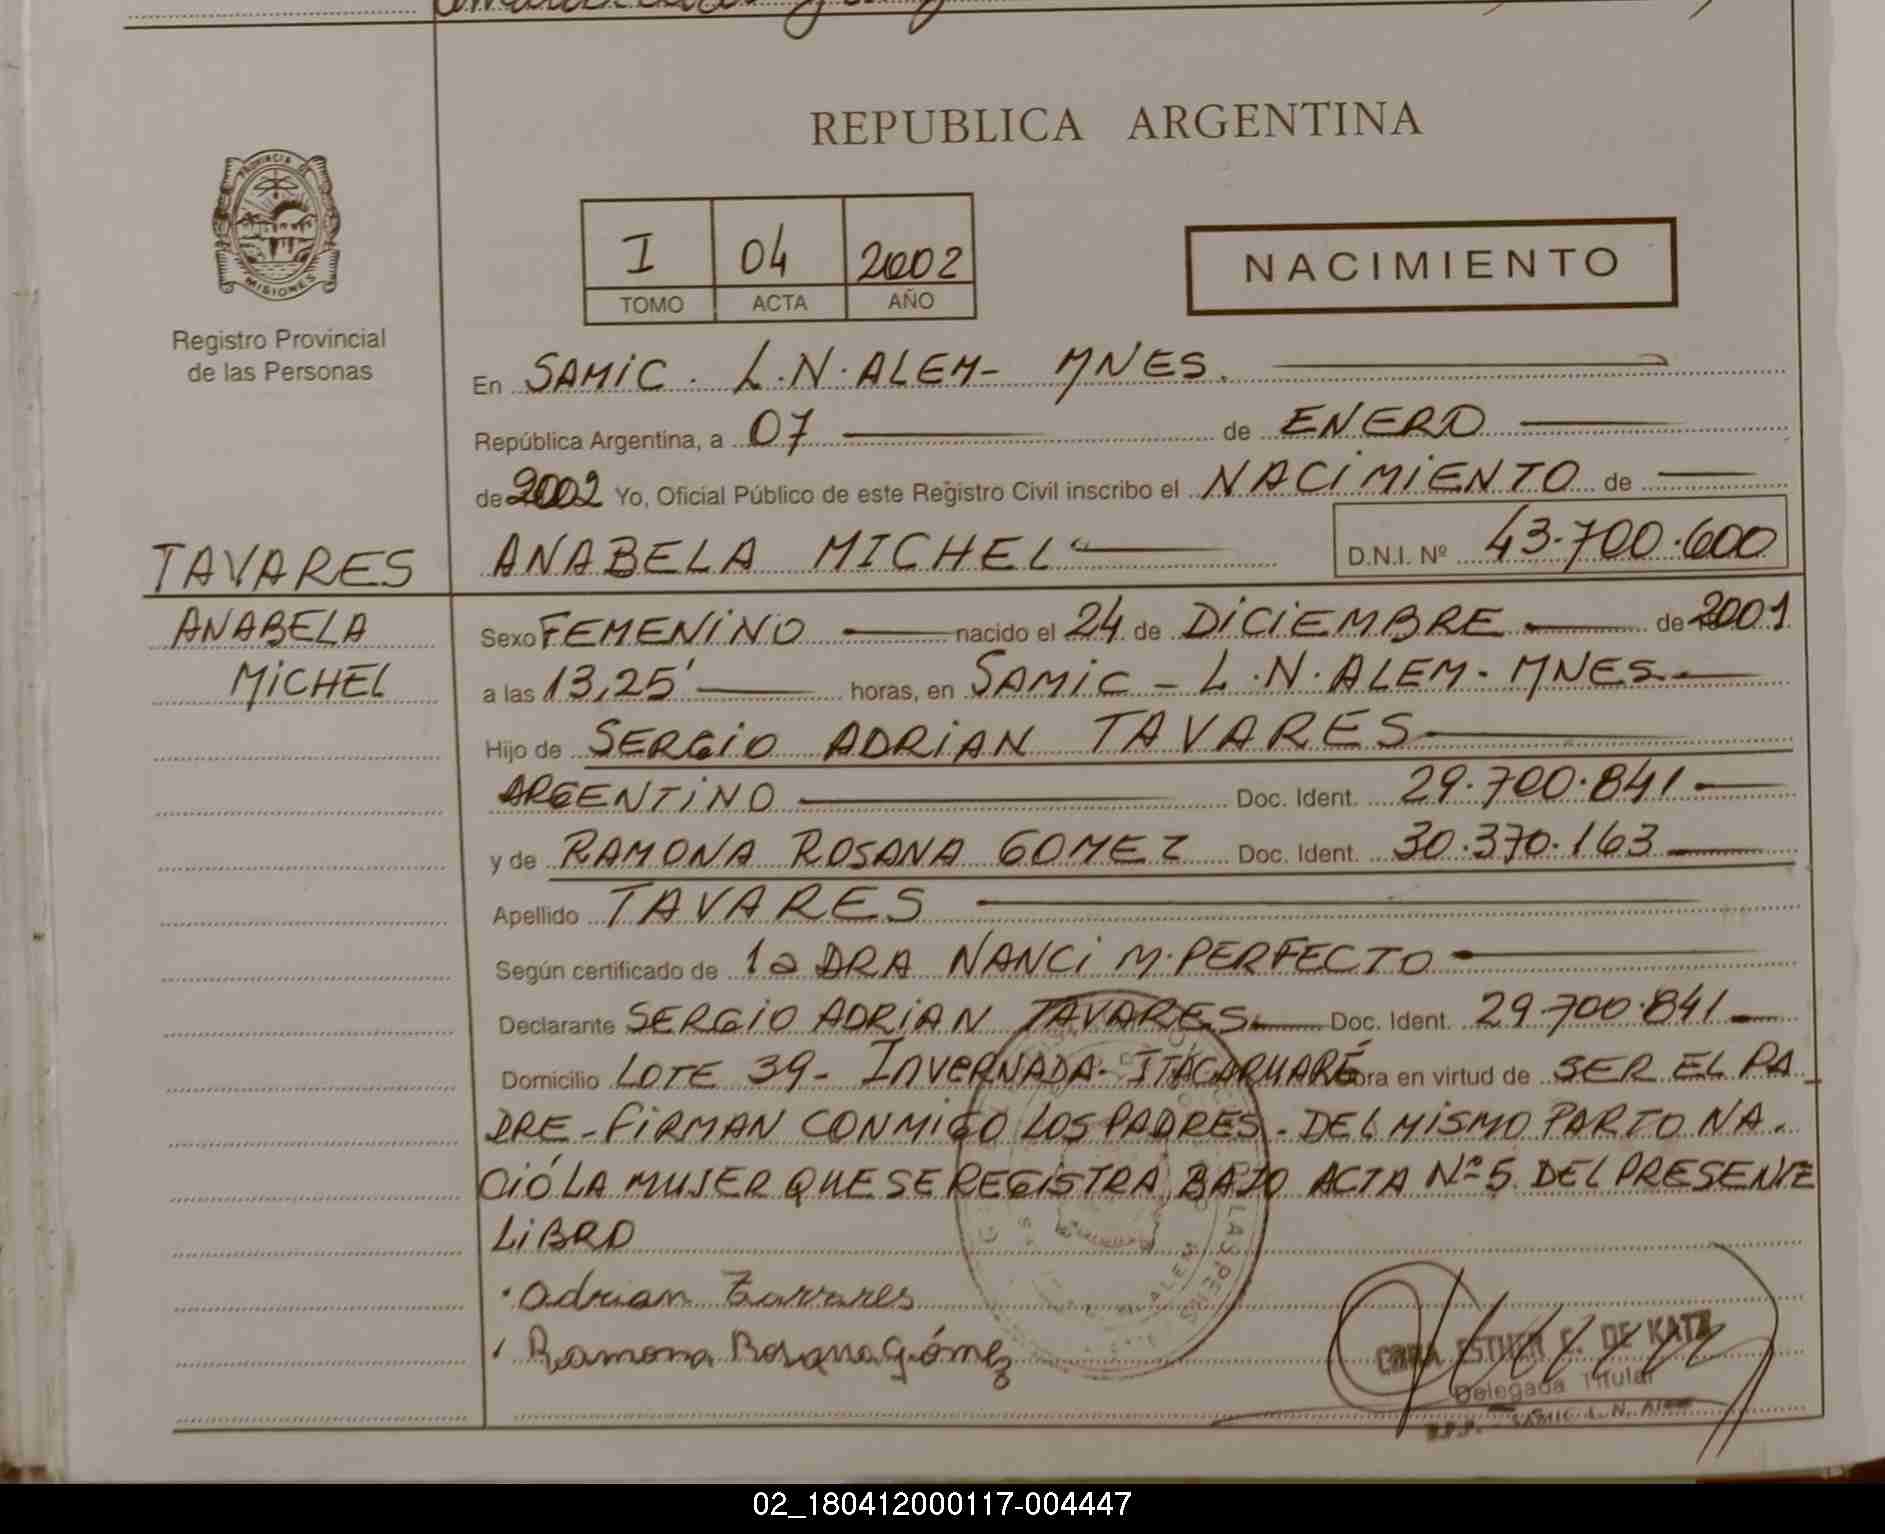 REPUBLICA ARGENTINA
PROVINCIA DE
MISIONES
Registro Provincial
de las Personas
I 04 2002
TOMO ACTA AÑO
NACIMIENTO
En SAMIC. L.N. ALEM- MNES.
República Argentina, a 07 de ENERO
de 2002 Yo, Oficial Público de este Registro Civil inscribo el NACIMIENTO de
TAVARES ANABELA MICHEL D.N.I. Nº 43.700.600
ANABELA
MICHEL
Sexo FEMENINO nacido el 24 de DICIEMBRE de 2001
a las 13,25' horas, en SAMIC - L.N. ALEM - MNES
Hijo de SERGIO ADRIAN TAVARES
ARGENTINO Doc. Ident. 29.700.841
y de RAMONA ROSANA GOMEZ Doc. Ident. 30.370.163
Apellido TAVARES
Según certificado de 1a DRA NANCI M. PERFECTO
Declarante SERGIO ADRIAN TAVARES Doc. Ident. 29.700.841
Domicilio LOTE 39- INVERNADA- ITACARUARÉ obra en virtud de SER EL PA
DRE - FIRMAN CONMIGO LOS PADRES - DEL MISMO PARTO NA.
CIÓ LA MUJER QUE SE REGISTRA BAJO ACTA Nº 5 DEL PRESENTE
LIBRO
Adrian Tavares
Ramona Rosana Gómez
ESTHER C. DE KATZ
Delegada Titular
SAMIC L. N. ALEM
02_180412000117-004447